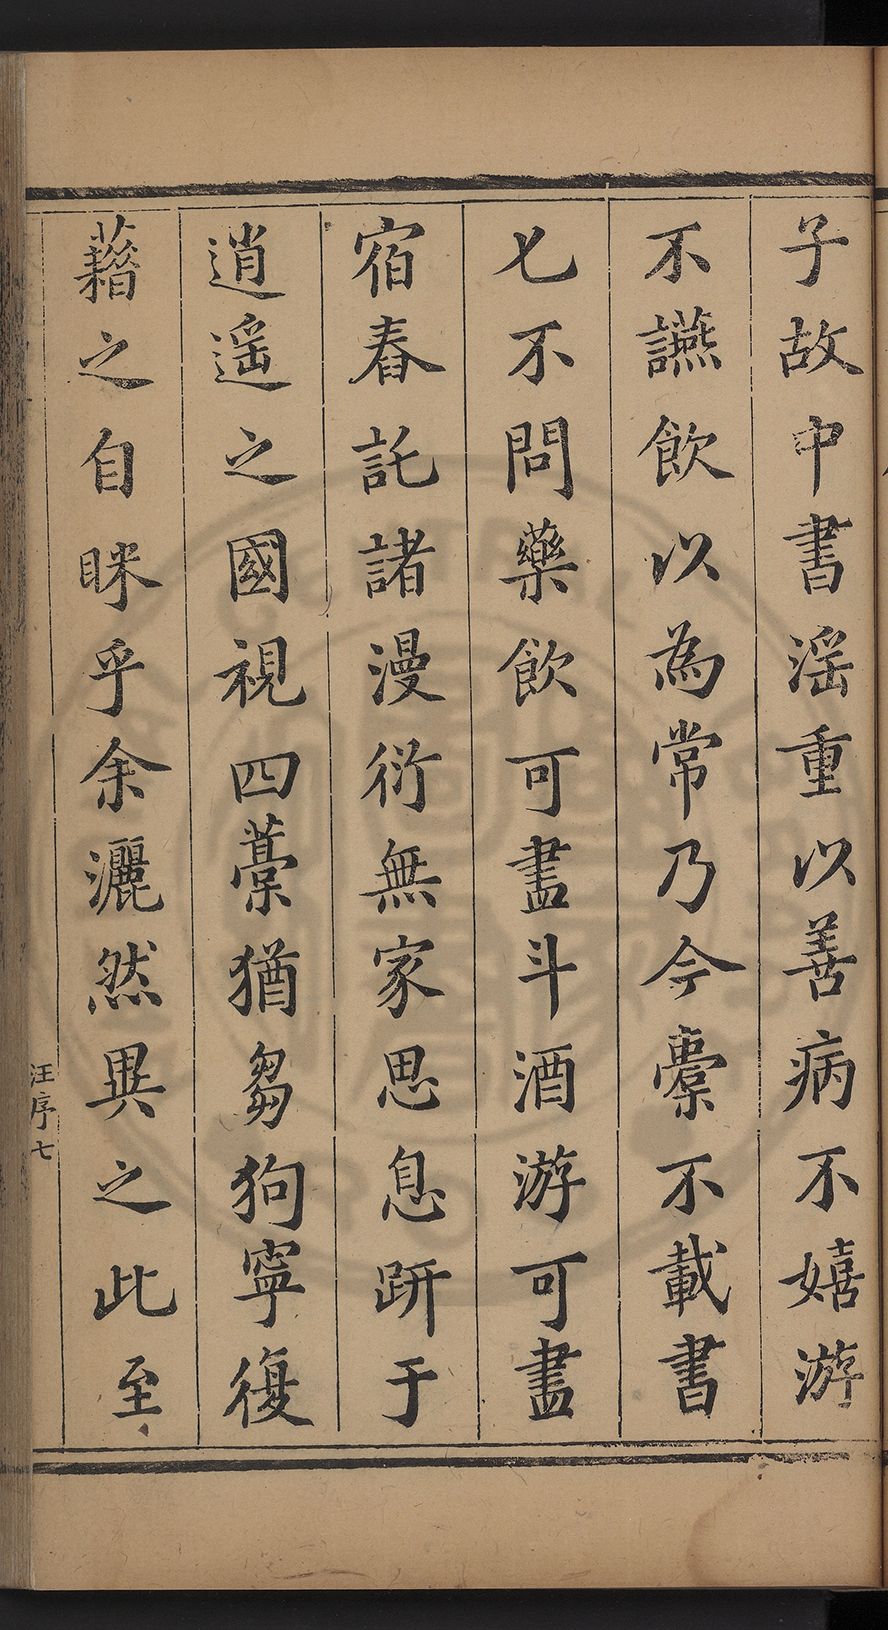 子故中書滛重以善病不嬉游
不讌飲以為常乃今橐不載書
匕不問藥飲可盡斗酒游可盡
宿舂託諸漫衍無家思息趼于
逍遥之國視四藁猶芻狗寧復
藉之自眯乎余灑然異之此至
汪序七